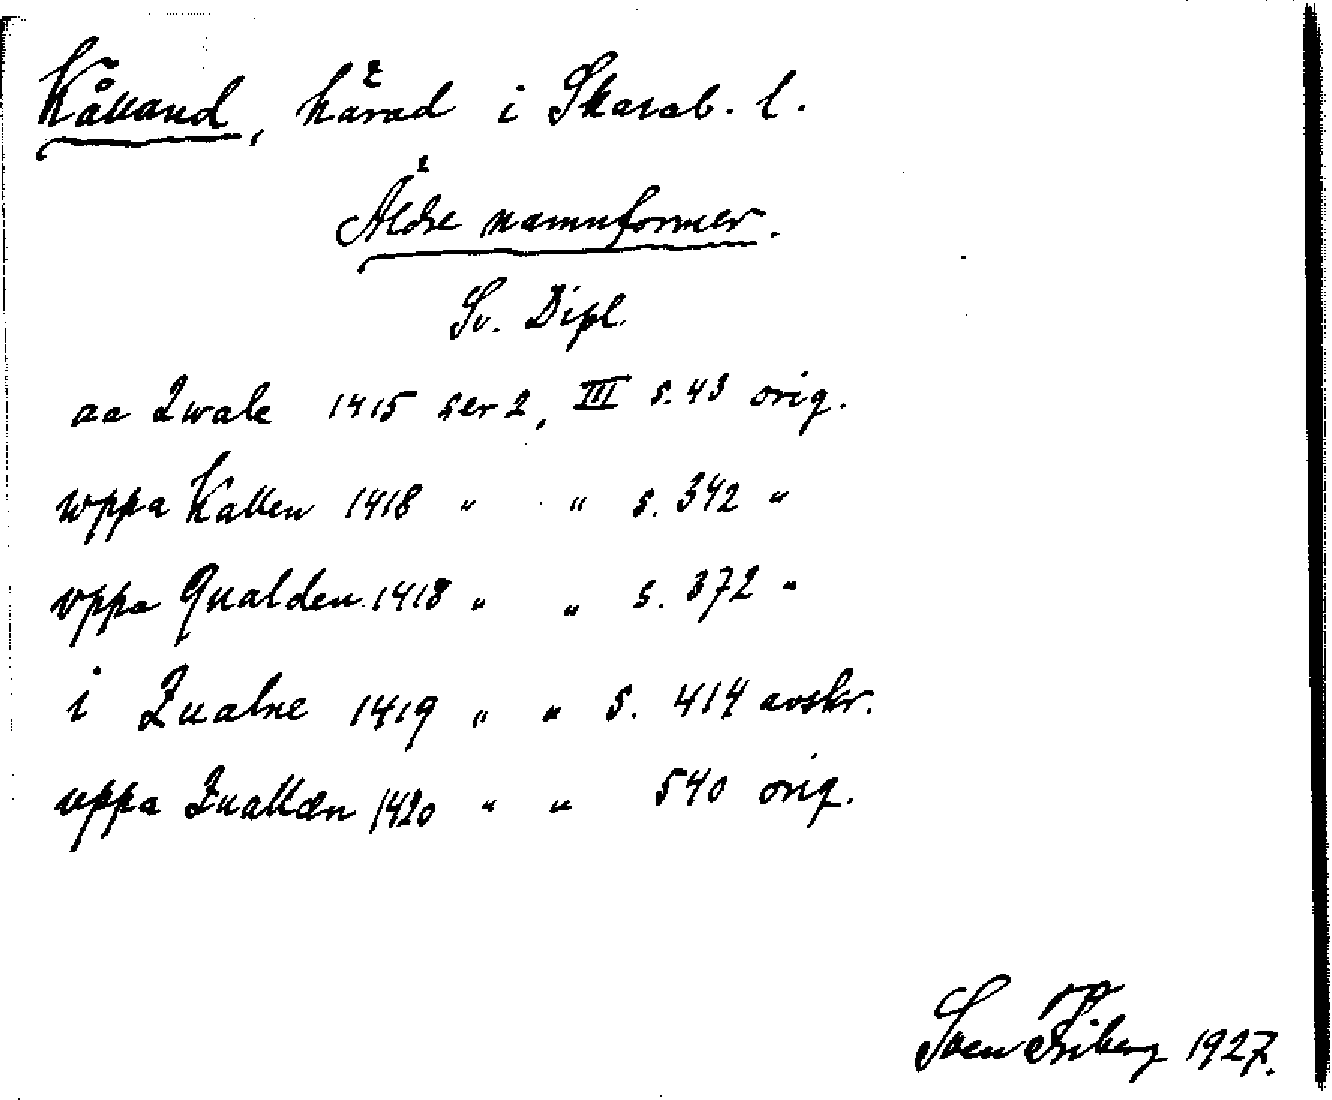 Kålland, härad i Skarab. l.
Äldre namnformer.
Sv. Dipl.
aa Qwale 1415 ser 2, III s. 43 orig.
uppa Kallen 1418 " " s. 342 "
vppa Qualden 1418 " " s. 372 "
i Qualne 1419 " " s. 414 avskr.
uppa Quallæn 1420 " " 540 orig.
Sven Friberg 1927.